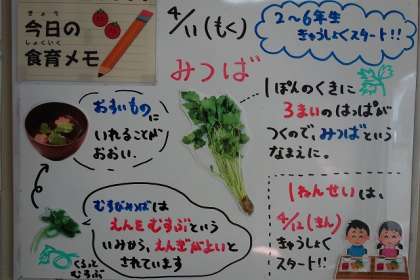 きょう
今日の
しょくいく
食育メモ
4/11(もく)
2～6年生
きゅうしょくスタート!!
みつば
1ぽんのくきに
3まいのはっぱが
つくので、みつばという
なまえに。
おすいものに
いれることが
おおい.
むすびみつばは
えんをむすぶという
いみから、えんぎがよいと
されています
くるっと
むすぶ
1ねんせいは、
4/12(きん)
きゅうしょく
スタート!!